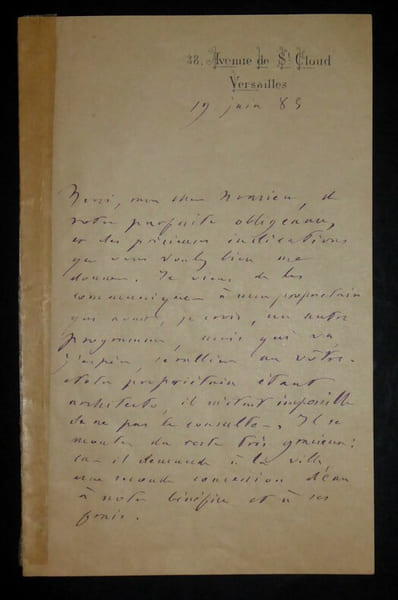 38, Avenue de St Cloud
Versailles
19 juin 85
Merci, mon cher Monsieur, de
votre parfaite obligeance,
et des précieuses indications
que vous voulez bien me
donner. Je viens de les
communiquer à mon propriétaire
qui avait, je crois, un autre
programme, mais qui va,
j'espère, se rallier au vôtre.
Notre propriétaire étant
architecte, il m'était impossible
de ne pas le consulter. Il se
montre du reste très gracieux :
car il demande à la ville
une seconde concession d'eau
à notre bénéfice et à ses
frais.